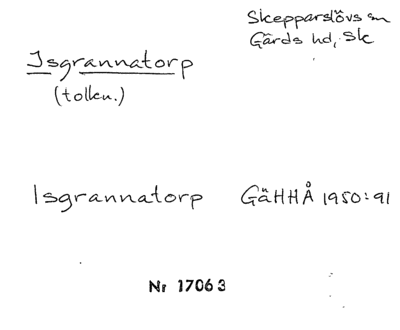 Skepparslövs sn
Gärds hd, Sk
Isgrannatorp
(tolkn.)
Isgrannatorp GäHHÅ 1950:91
Nr 17063